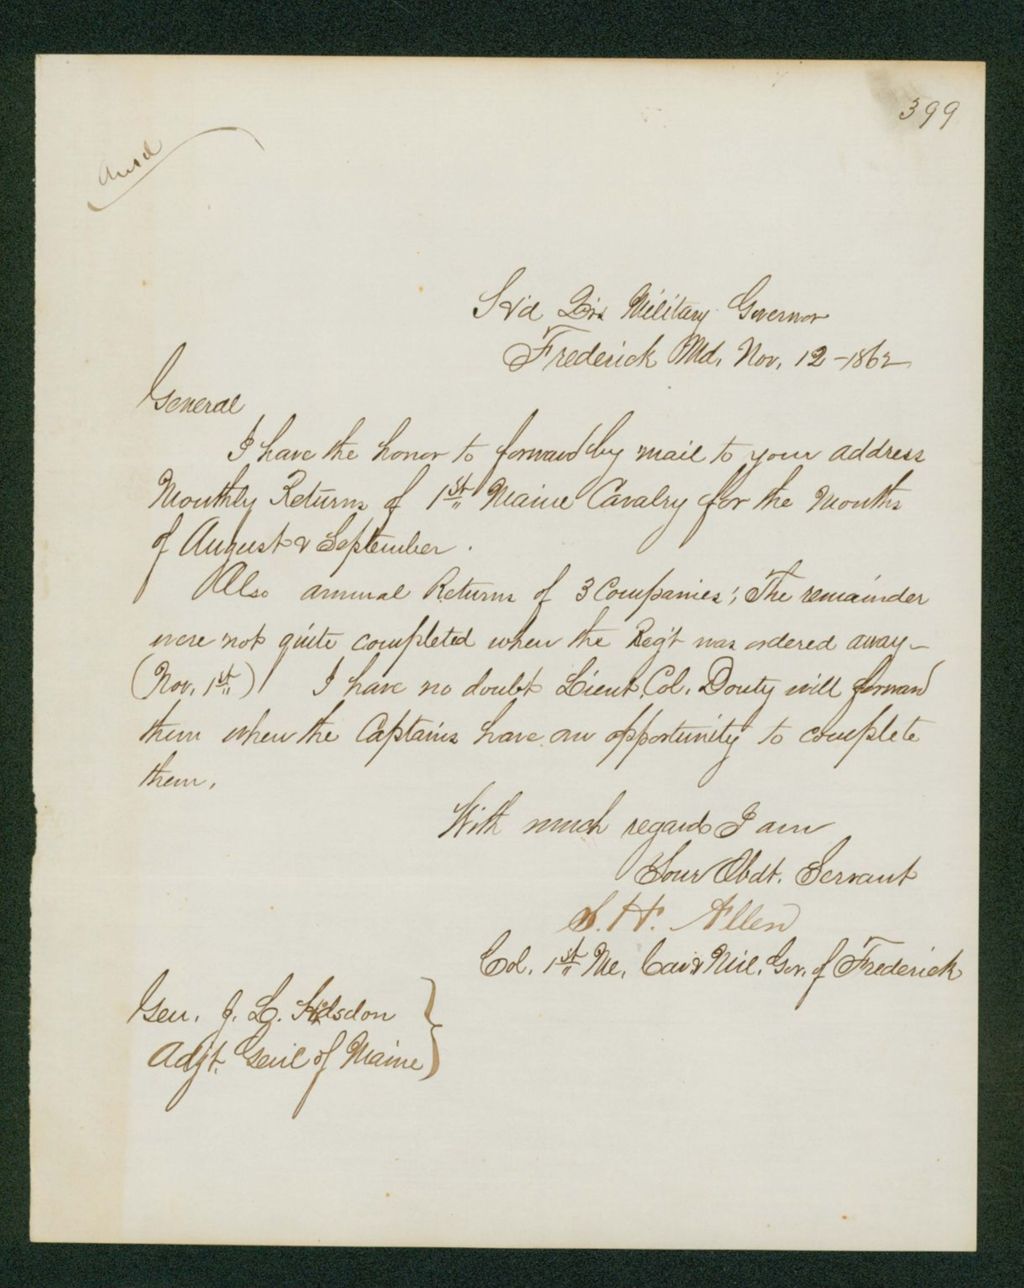 399
Ansd
Hd Qrs Military Governor
Frederick Md. Nov. 12 - 1862
General
I have the honor to forward by mail to your address
Monthly Returns of 1st Maine Cavalry for the Months
of August & September.
Also annual Returns of 3 Companies; The remainder
were not quite completed when the Reg't was ordered away -
(Nov. 1st) I have no doubt Lieut. Col. Douty will forward
them when the Captains have an opportunity to complete
them.
With much regard I am
Your Obdt. Servant
S. H. Allen
Col. 1st Me. Cav & Mil. Gov. of Frederick
Gen. J. L. Hodsdon
Adjt. Gen'l of Maine